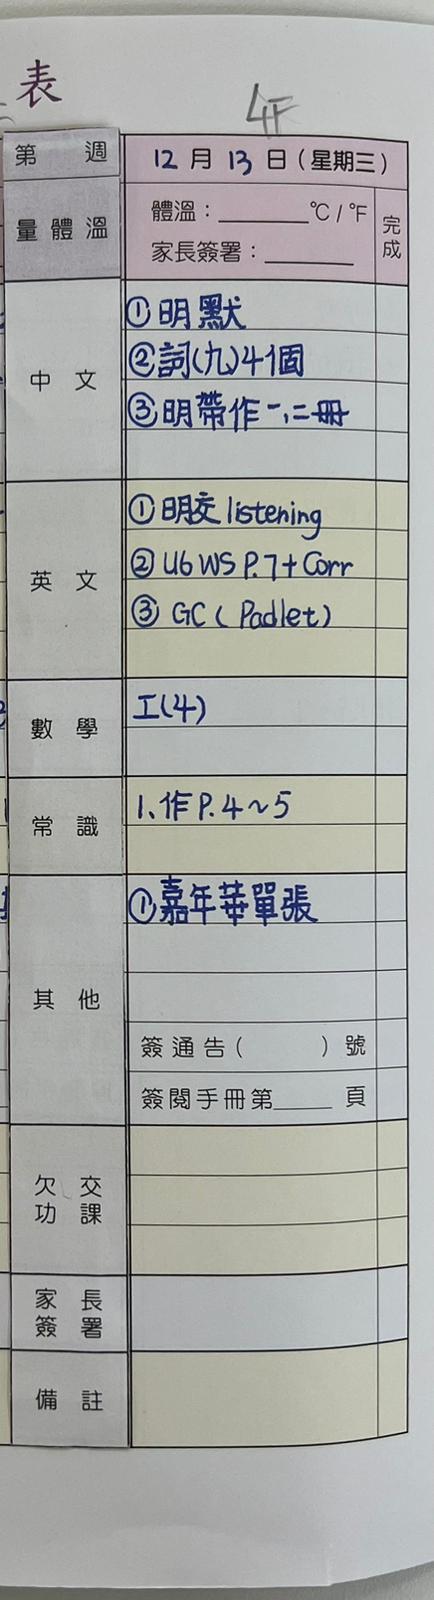 表
4F
第 週 12月13日(星期三)
量體溫 體溫:______℃/℉ 完成
家長簽署:______
中文 ①明默
②詞(九)4個
③明帶作一,二冊
英文 ①明交listening
②U6 WS P.7+Corr
③ GC (Padlet)
數學 工(4)
常識 1、作P.4~5
其他 ①嘉年華單張
簽通告( )號
簽閱手冊第____頁
欠交功課
家長簽署
備註